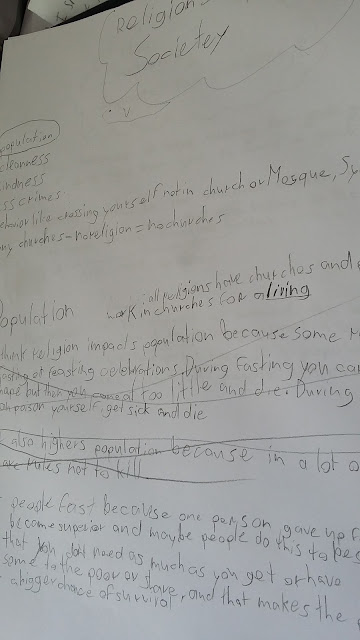 Religion
Societey
population
cleanness
indness
ss crimes
ehavior like crossing yourself not in church or Mosque, Sy
ny churches - no religion = no churches
all religions have churches and
opulation work in churches for a living
think religion impacts population because some r
fasting or feasting celebrations. During fasting you can
but then you eat too little and die. During
poison yourself, get sick and die
also highers population because in a lot o
are rules not to kill.
people fast because one person gave up f
become superior and maybe people do this to be s
that you don't need as much as you get or have
some to the poor or share, and that makes the
a bigger chance of survival